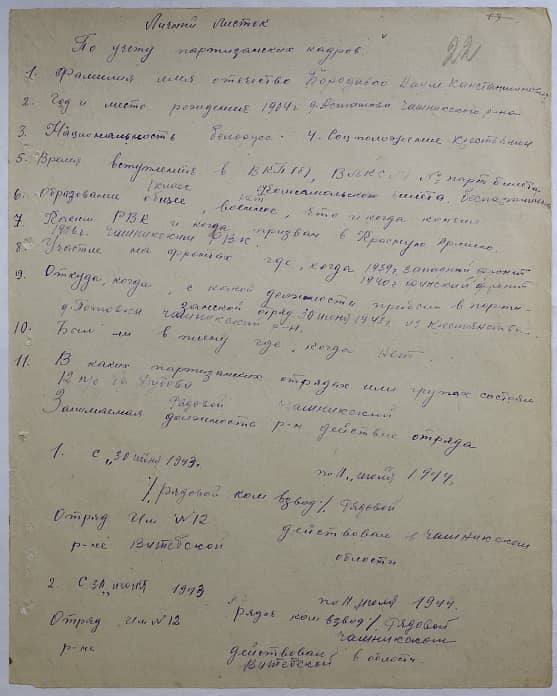 Личный Листок
22
По учету партизанских кадров.
1. Фамилия имя отечество Бородавко Наум Константинович
2. Год и место рождения 1904 г д. Асташова Чашникского р-на
3. Национальность белорус. 4. Соц положение Крестьянин
5. Время вступления в ВКП(б), ВЛКСМ № парт билета.
Комсомольского билета. беспартийный
6. Образование общее 1 класс, военное нет, что и когда кончил
7. Каким РВК и когда призван в Красную Армию.
1926 г. Чашникский РВК
8. Участие на фронтах где, когда 1939 г. западный фронт
1940 г. финский фронт
9. Откуда, когда, с какой должности прибыл в парти-
занский отряд 30 июня 1943 г. из крестьянства.
Чашникский р-н.
10. Был ли в плену где, когда нет.
11. В каких партизанских отрядах или группах состоял
12 п/о
Рядовой Чашникский
Занимаемая должность р-н действие отряда
1. С "30 июня 1943.
по 11 июля 1944.
/рядовой ком взвод/. Рядовой
Отряд Им №12 действовал в Чашникском
р-не Витебской области
2. С 30 июня 1943 по 11 июля 1944.
рядов ком взвод/. Рядовой
Отряд Им №12 Чашникском
р-на действовал в
Витебской области.